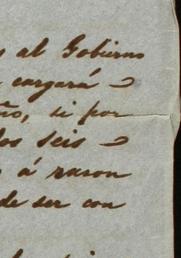 al Gobierno
cargará
ño, si por
los seis
á razon
de ser con